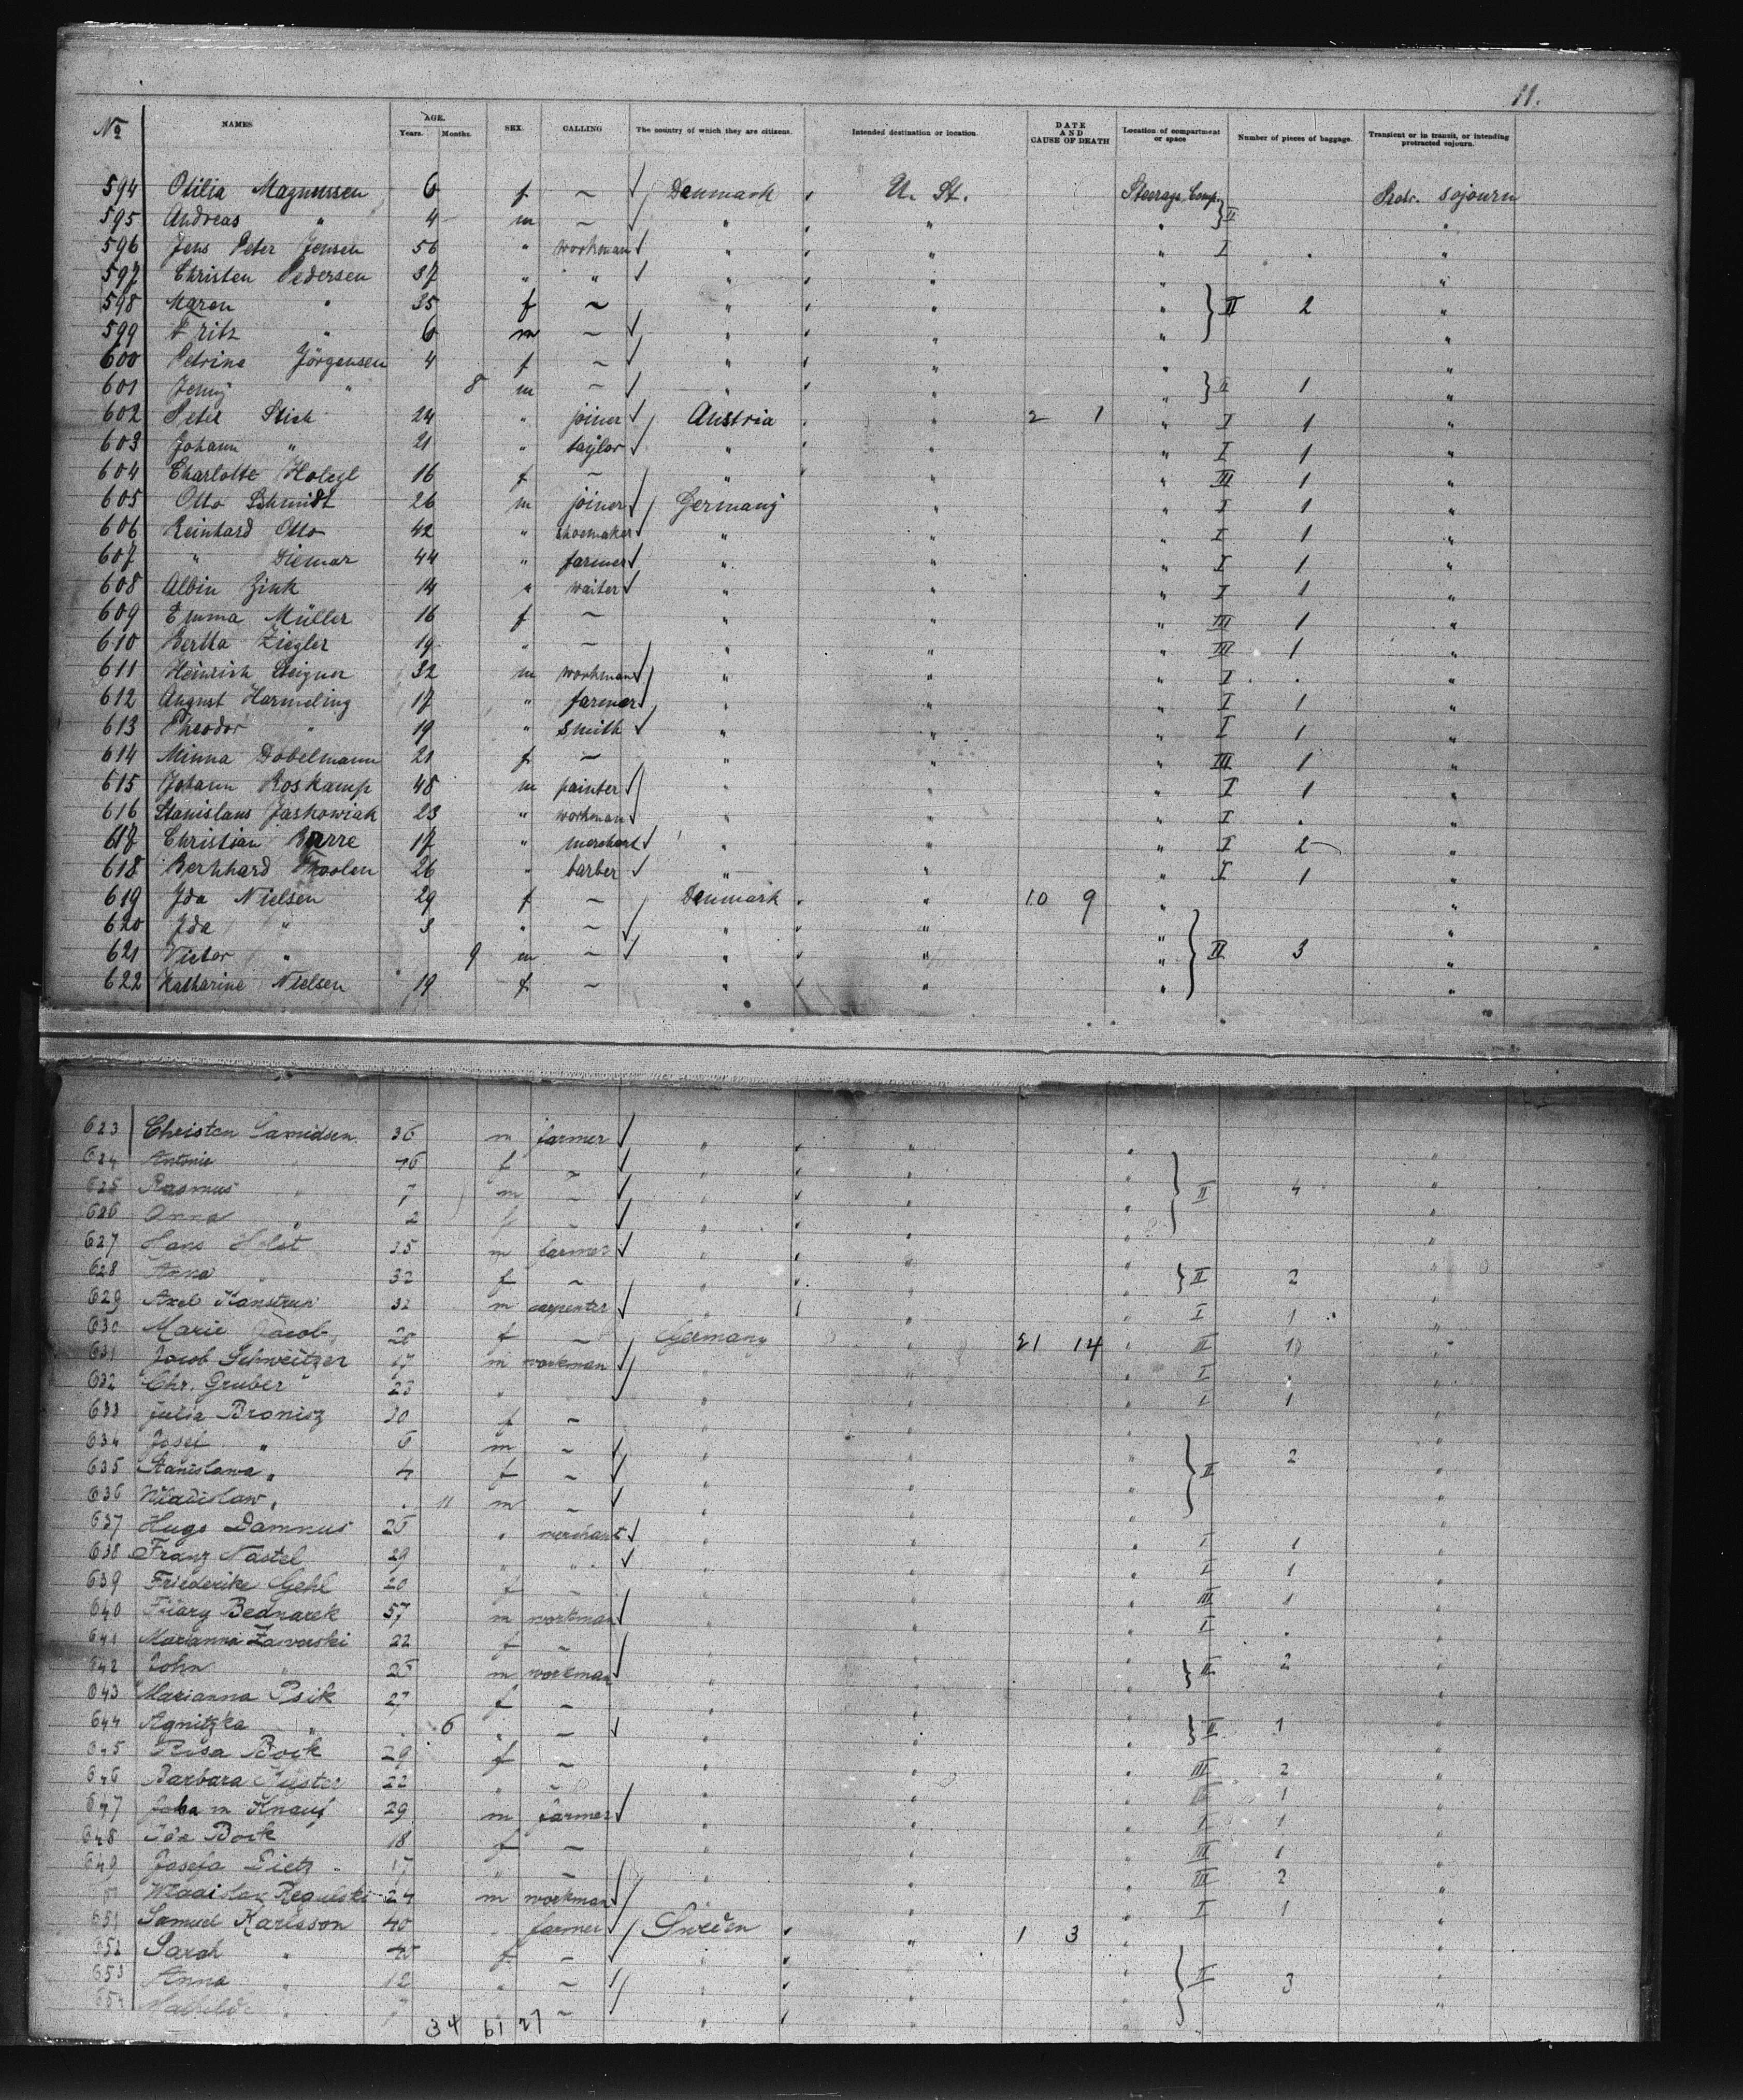 11.
No NAMES. AGE. Years. Months. SEX. CALLING The country of which they are citizens. Intended destination or location. DATE AND CAUSE OF DEATH Location of compartment or space Number of pieces of baggage. Transient or in transit, or intending protracted sojourn.
594 Otilia Magnussen 6 f ~ √ Denmark U. St. Steerage Comp. Protr. sojourn
595 Andreas " 4 m ~ √ " " " } II "
596 Jens Peter Jensen 56 " workman √ " " " I . "
597 Christen Pedersen 37 " " √ " " " "
598 Maren " 35 f ~ " " " } II 2 "
599 Fritz " 6 m ~ √ " " " "
600 Petrine Jörgensen 4 f ~ √ " " " "
601 Jenny " 8 m ~ √ " " " } II 1 "
602 Peter 24 " joiner √ Austria " 2 1 " I 1 "
603 Johann " 21 " taylor √ " " " I 1 "
604 Charlotte 16 f ~ " " " III 1 "
605 Otto Schmidt 26 m joiner √ Germany " " I 1 "
606 Reinhard Otto 42 " shoemaker √ " " " I 1 "
607 " Diemar 44 " farmer √ " " " I 1 "
608 Albin Zink 14 " waiter √ " " " I 1 "
609 Emma Müller 16 f ~ " " " III 1 "
610 Bertha Ziegler 19 " ~ " " " III 1 "
611 Heinrich Steigner 32 m workman √ " " " I . "
612 August Harmeling 17 " farmer √ " " " I 1 "
613 Theodor " 19 " smith √ " " " I 1 "
614 Minna Dobelmann 21 f ~ " " " III 1 "
615 Johann Roskamp 48 m painter √ " " " I 1 "
616 Stanislaus Jaskowiak 23 " workman √ " " " I . "
617 Christian 17 " merchant √ " " " I 2 "
618 Bernhard 26 " barber √ " " " I 1 "
619 Ida Nielsen 29 f ~ Denmark " 10 9 " "
620 Ida " 3 " ~ √ " " " "
621 Victor " 9 m ~ √ " " " } II 3 "
622 Katharine Nielsen 19 f ~ " " " "
623 Christen 36 m farmer √ " " " "
624 Antonie " f ~ √ " " " "
625 Rasmus " 7 m ~ √ " " " } II 4 "
626 Anna " 2 f ~ √ " " " "
627 Hans Holst 35 m farmer √ " " " "
628 Anna " 32 f ~ " " " } II 2 "
629 Axel Kanstrup 32 m carpenter √ " " " I 1 "
630 Marie Jacob 20 f ~ Germany " 21 14 " III "
631 Jacob Schweitzer 17 m workman √ " " " I . "
632 Chr. Gruber 23 " " √ " " " I 1 "
633 Julia Bronisz 30 f ~ " " " "
634 Josef " 6 m ~ √ " " " 2 "
635 Stanislawa " 4 f ~ √ " " " } II "
636 Wladislaw " . 11 m ~ √ " " " "
637 Hugo Damnus 25 " merchant √ " " " I 1 "
638 Franz Nastel 29 " " √ " " " I 1 "
639 Friederike Gehl 20 f ~ " " " III 1 "
640 Bednarek 57 m workman √ " " " I . "
641 Marianna Zaworski 22 f ~ " " " "
642 John " 25 m workman √ " " " } II 2 "
643 Marianna Psik 27 f ~ " " " "
644 Agnitzka " . 6 " ~ √ " " " } II 1 "
645 Rosa Bock 29 f ~ " " " III 2 "
646 Barbara 22 " ~ " " " III 1 "
647 Johann Knauf 29 m farmer √ " " " I 1 "
648 Ida Bock 18 f ~ " " " III 1 "
649 Josefa Dietz 17 " ~ " " " III 2 "
Wladislax Regulski 24 m workman √ " " " I 1 "
651 Samuel Karlsson 40 " farmer √ Sweden " 1 3 " "
652 Sarah " f ~ " " " "
653 Anna " 12 " ~ √ " " " } II 3 "
654 Mathilde " 7 " ~ √ " " " "
34 61 27